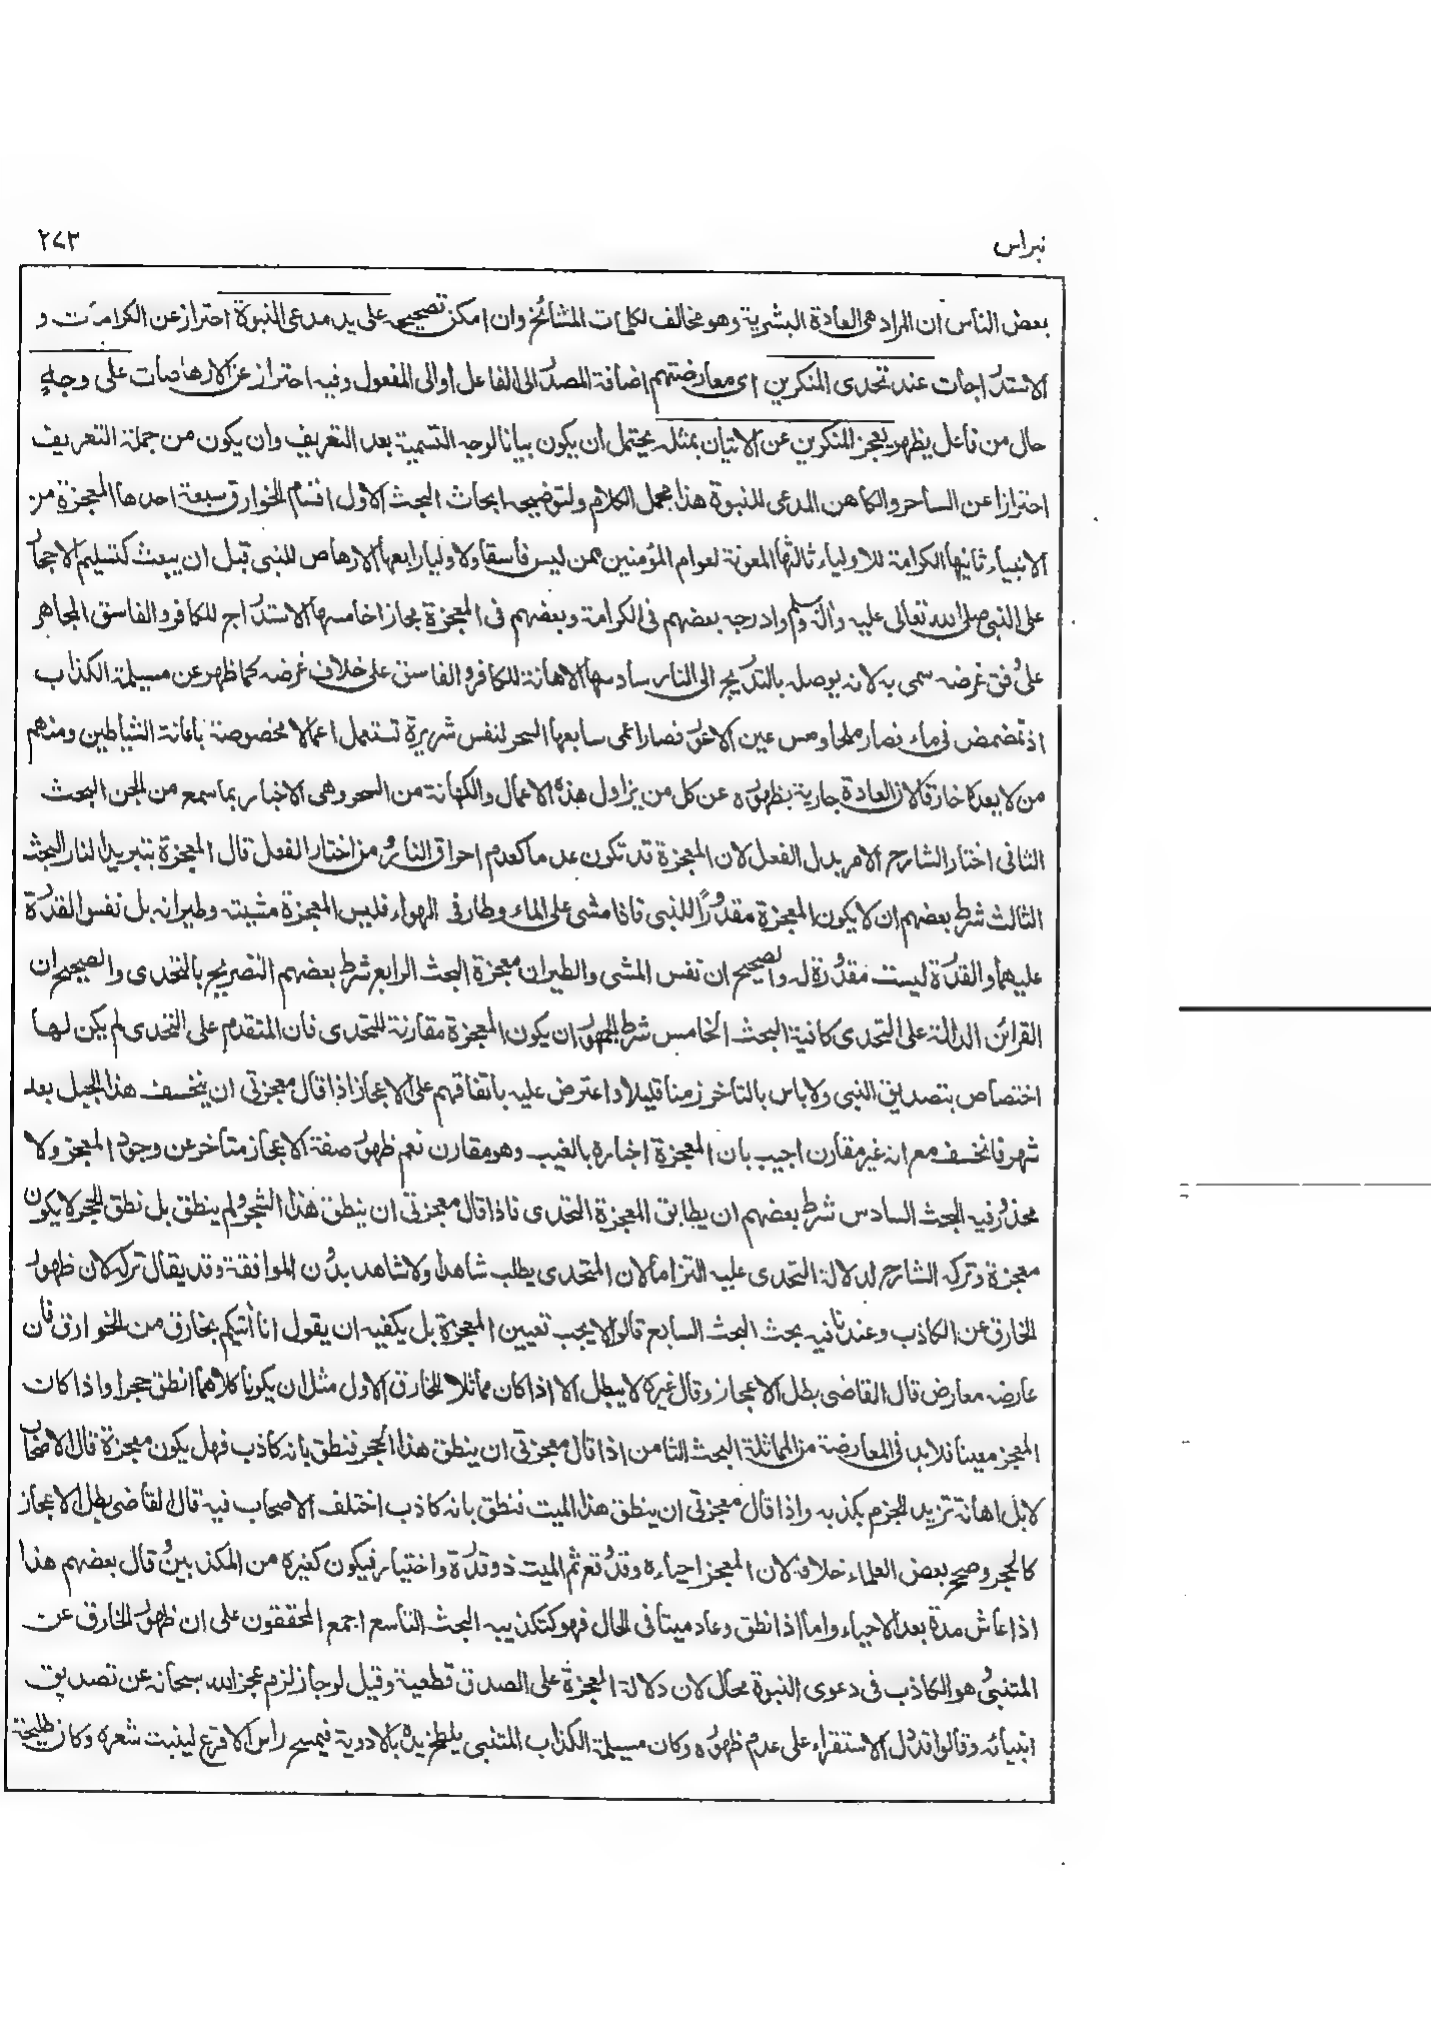 نبراس
٢٧٣
بعض الناس ان المراد هى العادة البشرية وهو مخالف لكلمات المشائخ وان امكن تصحيحه على يد مدعى النبوة احتراز عن الكرامات و
الاستدراجات عند تحدى المنكرين اى معارضتهم اضافة المصدر الى الفاعل او الى المفعول وفيه احتراز عن الارهاصات على وجه
حال من فاعل يظهر يعجز المنكرين عن الاتيان بمثله يحتمل ان يكون بيانا لوجه التسمية بعد التعريف وان يكون من جملة التعريف
احترازا عن الساحر والكاهن المدعى للنبوة هذا مجمل الكلام ولتوضيحه ابحاث البحث الاول اقسام الخوارق سبعة احدها المعجزة من
الانبياء ثانيها الكرامة للاولياء ثالثها المعونة لعوام المؤمنين ممن ليس فاسقا ولا وليا رابعها الارهاص للنبى قبل ان يبعث كتسليم الاحجار
على النبى صلى الله تعالى عليه واله وسلم وادرجه بعضهم فى الكرامة وبعضهم فى المعجزة مجازا خامسها الاستدراج للكافر والفاسق المجاهر
على وفق غرضه سمى به لانه يوصله بالتدريج الى النار سادسها الاهانة للكافر والفاسق على خلاف غرضه كما ظهر عن مسيلمة الكذاب
اذ تمضمض فى ماء فصار ملحا ومس عين الاعور فصار اعمى سابعها السحر لنفس شريرة تستعمل اعمالا مخصوصة باعانة الشياطين ومنهم
من لا يعده خارقا لان العادة جارية بظهوره عن كل من يزاول هذه الاعمال والكهانة من السحر وهى الاخبار بما سمع من الجن البحث
الثانى اختار الشارح الامر بدل الفعل لان المعجزة قد تكون عدما كعدم احراق النار ومن اختار الفعل قال المعجزة تبريد النار البحث
الثالث شرط بعضهم ان لا يكون المعجزة مقدورا للنبى فاذا مشى على الماء وطار فى الهواء فليس المعجزة مشيته وطيرانه بل نفس القدرة
عليهما والقدرة ليست مقدورة له والصحيح ان نفس المشى والطيران معجزة البحث الرابع شرط بعضهم التصريح بالتحدى والصحيح ان
القرائن الدالة على التحدى كافية البحث الخامس شرط الجمهور ان يكون المعجزة مقارنة للتحدى فان المتقدم على التحدى لم يكن لها
اختصاص بتصديق النبى ولا باس بالتاخر زمنا قليلا واعترض عليه باتفاقهم على الاعجاز اذا قال معجزتى ان ينخسف هذا الجبل بعد
شهر فانخسف مع انه غير مقارن اجيب بان المعجزة اخباره بالغيب وهو مقارن نعم ظهور صفة الاعجاز متاخر عن وجود المعجز ولا
محذور فيه البحث السادس شرط بعضهم ان يطابق المعجزة التحدى فاذا قال معجزتى ان ينطق هذا الشجر ولم ينطق بل نطق الحجر لا يكون
معجزة وتركه الشارح لدلالة التحدى عليه التزاما لان المتحدى يطلب شاهدا ولا شاهد بدون الموافقة وقد يقال تركه لان ظهور
الخارق عن الكاذب وعندنا فيه بحث البحث السابع قالوا لا يجب تعيين المعجزة بل يكفيه ان يقول انا اتيكم بخارق من الخوارق فان
عارضه معارض قال القاضى بطل الاعجاز وقال غيره لا يبطل الا اذا كان مماثلا للخارق الاول مثل ان يكونا كلاهما انطق حجرا واذا كان
المعجز معينا فلا بد فى المعارضة من المماثلة البحث الثامن اذا قال معجزتى ان ينطق هذا الحجر فنطق بانه كاذب فهل يكون معجزة قال الاصحاب
لا بل اهانة تزيد الجزم بكذبه واذا قال معجزتى ان ينطق هذا الميت فنطق بانه كاذب اختلف الاصحاب فيه قال القاضى بطل الاعجاز
كالحجر وصحح بعض العلماء خلافه لان المعجز احياءه وقد وقع ثم الميت ذو قدرة واختيار فيكون كغيره من المكذبين وقال بعضهم هذا
اذا عاش مدة بعد الاحياء واما اذا نطق وعاد ميتا فى الحال فهو كتكذيبه البحث التاسع اجمع المحققون على ان ظهور الخارق عن
المتنبى وهو الكاذب فى دعوى النبوة محال لان دلالة المعجزة على الصدق قطعية وقيل لو جاز لزم عجز الله سبحانه عن تصديق
انبيائه وقالوا قد دل الاستقراء على عدم ظهوره وكان مسيلمة الكذاب المتنبى يلطخ يده بالادوية فيمسح راس الاقرع لينبت شعره وكان طليحة